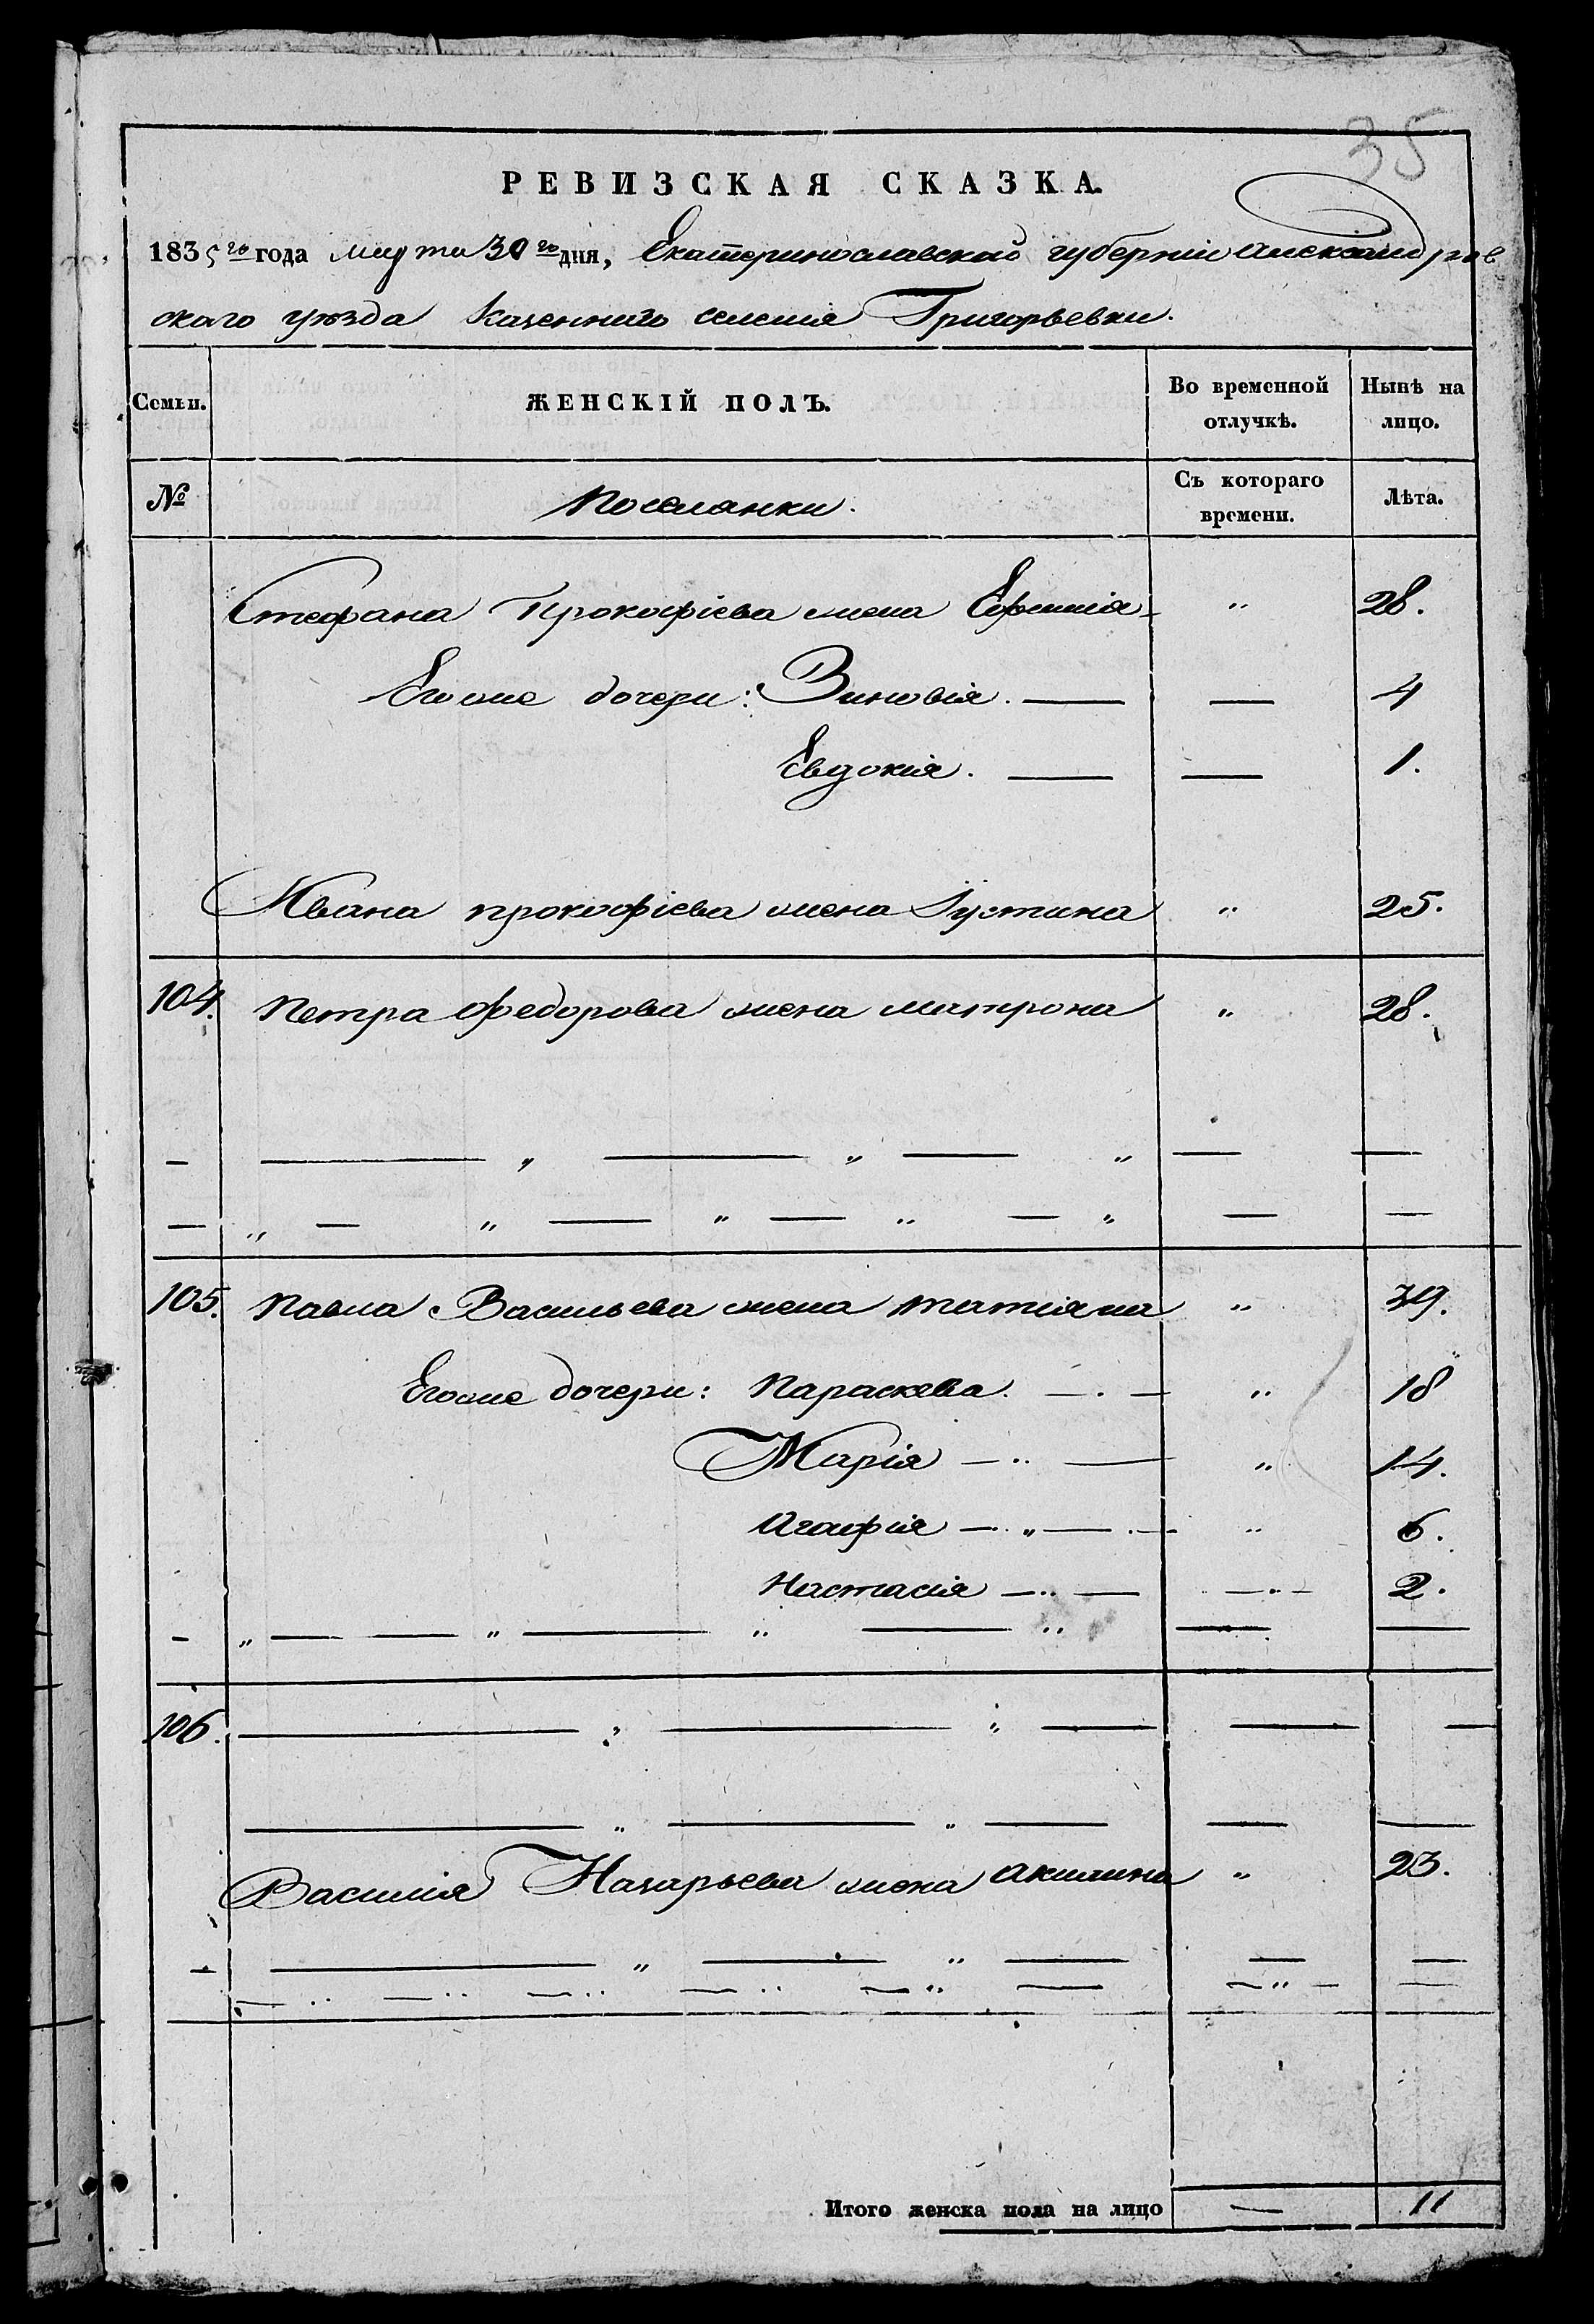 35
РЕВИЗСКАЯ СКАЗКА.
1835 го года марта 30 го дня, Екатеринославской губерніи Александров
скаго уѣзда Казеннаго селенія Григорьевки.
Семьи. ЖЕНСКІЙ ПОЛЪ. Во временной отлучкѣ. Нынѣ на лицо.
№ Поселянки. Съ котораго времени. Лѣта.
Стефана Прокофіева жена Ефимія „ 28.
Егоже дочери: Зиновія. — — 4
Евдокія. — — 1.
Ивана прокофіева жена Іустина „ 25.
104. Петра Федорова жена матрона „ 28.
— — „ — „ — „ — —
— „ — „ — „ — „ — „ — —
105. Павла Васильева жена татіяна „ 39.
Егоже дочери: Параскева. — . — „ 18
Марія — „ — „ 14.
Агафія — „ — . — „ 6.
Настасія — „ — — „ — 2.
— „ — — „ — „ — „ — —
106. — „ — „ — — —
— „ — „ — — —
Василія Назарьева жена акилина „ 23.
— — „ — „ — — —
— „ — „ — „ — „ — „ — — „ — —
Итого женска пола на лицо — 11